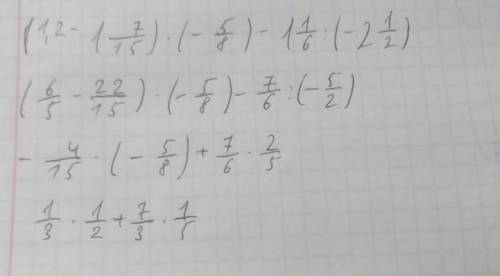 (1,2 - 1 7/15) · (- 5/8) - 1 1/6 : (-2 1/2)
(6/5 - 22/15) · (- 5/8) - 7/6 : (- 5/2)
- 4/15 · (- 5/8) + 7/6 · 2/5
1/3 · 1/2 + 7/3 · 1/5